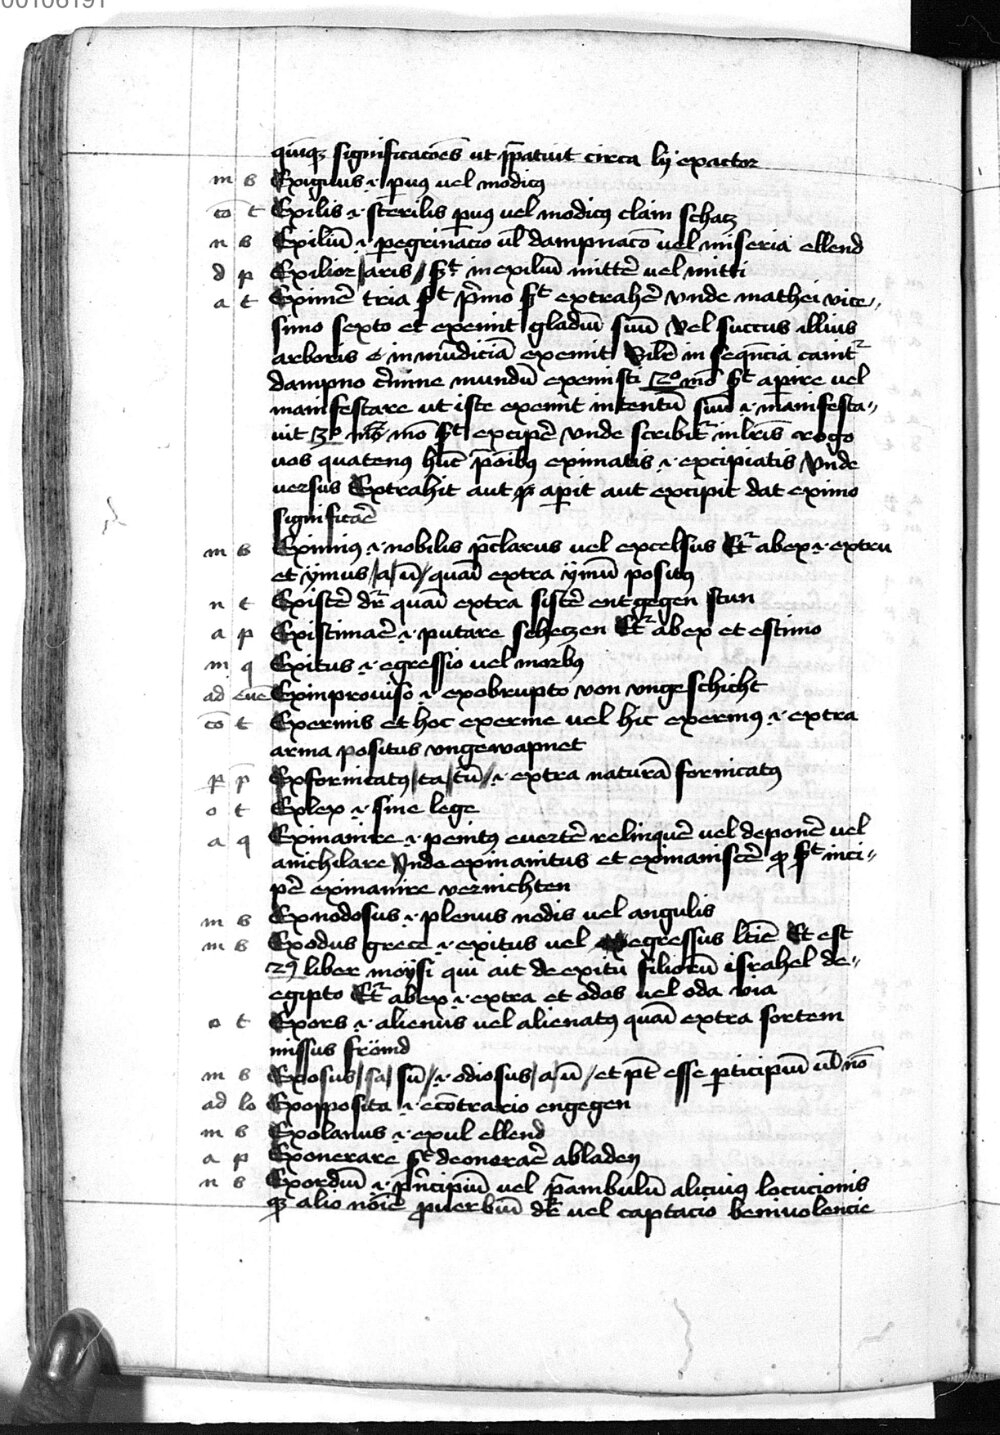 00106191
quīqꝫ significacōēs ut ꝓpatuit circa ly exactor
m b Exiguus .i. puꝰ uel modicꝰ
cō t Exilis .i. sterilis puꝰ uel modicꝰ clain schatz
n b Exiliū .i. pegrinacio ul̄ dampnacō uel miseria ellend
d p Exilior / aris / sꝫt in exiliū mittē uel mitti
a t Eximē tria st p̄mo st extrahē vnde mathei vice„
simo sexto et exemit gladiū suū Vel succus illius
arboris e in mūdiciā exemit in sequēcia canitᷣ
dampno c̄mine mundū exemisti 2º mō st apire uel
manifestare ut iste exemit intentū suū .i. manifesta„
uit 3º mō st excipē vnde scribitᷣ in lr̄is rogo
uos quatenꝰ hūc eximatis .i. excipiatis vnde
uersus Extrahit aut apit aut excipit dat eximo
significāē
m b Eximius .i. nobilis p̄clarus uel excelsus Etᷣ ab ex .i. extra
et ymus / a / ū / quasi extra ymū positꝰ
n t Existē dr̄ quasi extra sistē entgegen stan
a p Existimaē .i. putare schetzen Etᷣ ab ex et estimo
m q Exitus .i. egressio uel morbꝰ
ad eue Eximprouiso .i. exobrupto von vngeschicht
cō t Exermis et hoc exerme uel hic exermꝰ .i. extra
arma positus vngewapnet
p p̄ Exfornicatꝰ / ta / tū / .i. extra naturā fornicatꝰ
o t Exlex .i. sine lege
a q Exinanire .i. penitꝰ euertē relinquē uel deponē uel
anichilare Vnde exinanitus et exinaniscē st inci„
pē exinanire vernichten
m b Exnodosus .i. plenus nodis uel angulis
m b Exodus grece .i. exitus uel egressus Et est
2ꝰ liber moysi qui ait de exitu filiorū israhel de„
egipto Etᷣ ab ex .i. extra et odos uel oda via
o t Exors .i. alienus uel alienatꝰ quasi extra sortem
missus frömd
m b Exosus / sa / sū / .i. odiosus / a / ū / et pt̄ esse pticipiū ul̄ nō
ad lo Exopposita .i. ecōtrario engegen
m b Exolanus .i. exul ellend
a p Exonerare st deoneraē abladen
n b Exordiū .i. p̄ncipiū uel p̄ambulū alicuiꝰ locucionis
qꝫ alio nōīe ꝓuerbiū dr̄ uel captacio beniuolencie